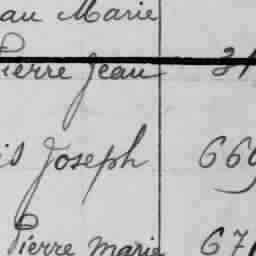 au Marie
Pierre Jean 31
is Joseph 669
Pierre Marie 671